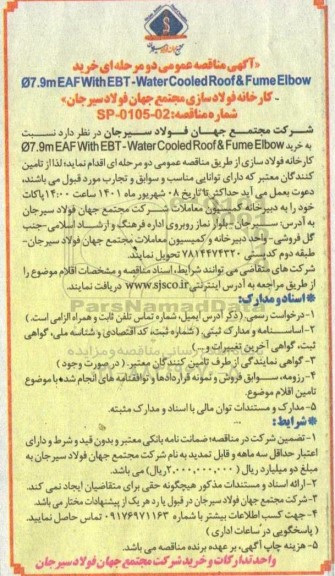 «آگهی مناقصه عمومی دو مرحله ای خرید
Ø7.9m EAF With EBT - Water Cooled Roof & Fume Elbow
- کارخانه فولادسازی مجتمع جهان فولاد سیرجان»
شماره مناقصه: SP-0105-02
شرکت مجتمع جهان فولاد سیرجان در نظر دارد نسبت
به خرید Ø7.9m EAF With EBT - Water Cooled Roof & Fume Elbow
کارخانه فولادسازی از طریق مناقصه عمومی دو مرحله ای اقدام نماید؛ لذا از تامین
کنندگان معتبر که دارای توانایی مناسب و سوابق و تجارب مورد قبول می باشند،
دعوت بعمل می آید حداکثر تا تاریخ ۰۸ شهریور ماه ۱۴۰۱ ساعت ۱۴:۰۰ پاکات
خود را به دبیرخانه کمیسیون معاملات شرکت مجتمع جهان فولاد سیرجان
به آدرس: سیرجان - بلوار نماز روبروی اداره فرهنگ و ارشاد اسلامی - جنب
گل فروشی - واحد دبیرخانه و کمیسیون معاملات مجتمع جهان فولاد سیرجان -
طبقه دوم کدپستی ۷۸۱۴۷۴۳۲۰ تحویل نمایند.
شرکت های متقاضی می توانند شرایط، اسناد مناقصه و مشخصات اقلام موضوع را
از طریق مراجعه به آدرس اینترنتی www.sjsco.ir دریافت نمایند.
* اسناد و مدارک:
۱- درخواست رسمی. (ذکر آدرس ایمیل، شماره تماس تلفن ثابت و همراه الزامی است.)
۲- اساسنامه و مدارک ثبتی. (شماره ثبت، کد اقتصادی و شناسه ملی، گواهی
ثبت، گواهی آخرین تغییرات و...)
۳- گواهی نمایندگی از طرف تامین کنندگان معتبر. (در صورت وجود)
۴- رزومه، سوابق فروش و نمونه قراردادها و توافقنامه های انجام شده با موضوع
تامین اقلام موضوع.
۵- مدارک و مستندات توان مالی با اسناد و مدارک مثبته.
* شرایط:
۱- تضمین شرکت در مناقصه؛ ضمانت نامه بانکی معتبر و بدون قید و شرط و دارای
اعتبار حداقل سه ماهه و قابل تمدید به نام شرکت مجتمع جهان فولاد سیرجان به
مبلغ دو میلیارد ریال (۲,۰۰۰,۰۰۰,۰۰۰ ریال) می باشد.
۲- ارائه اسناد و مستندات مذکور هیچگونه حقی برای متقاضیان ایجاد نمی کند.
۳- شرکت مجتمع جهان فولاد سیرجان در قبول یا رد هر یک از پیشنهادات مختار می باشد.
۴- جهت کسب اطلاعات بیشتر با شماره ۰۹۱۷۶۹۷۱۱۶۳ تماس حاصل نمایید.
(پاسخگویی در ساعات اداری)
۵- هزینه چاپ آگهی، بر عهده برنده مناقصه می باشد.
واحد تدارکات و خرید شرکت مجتمع جهان فولاد سیرجان